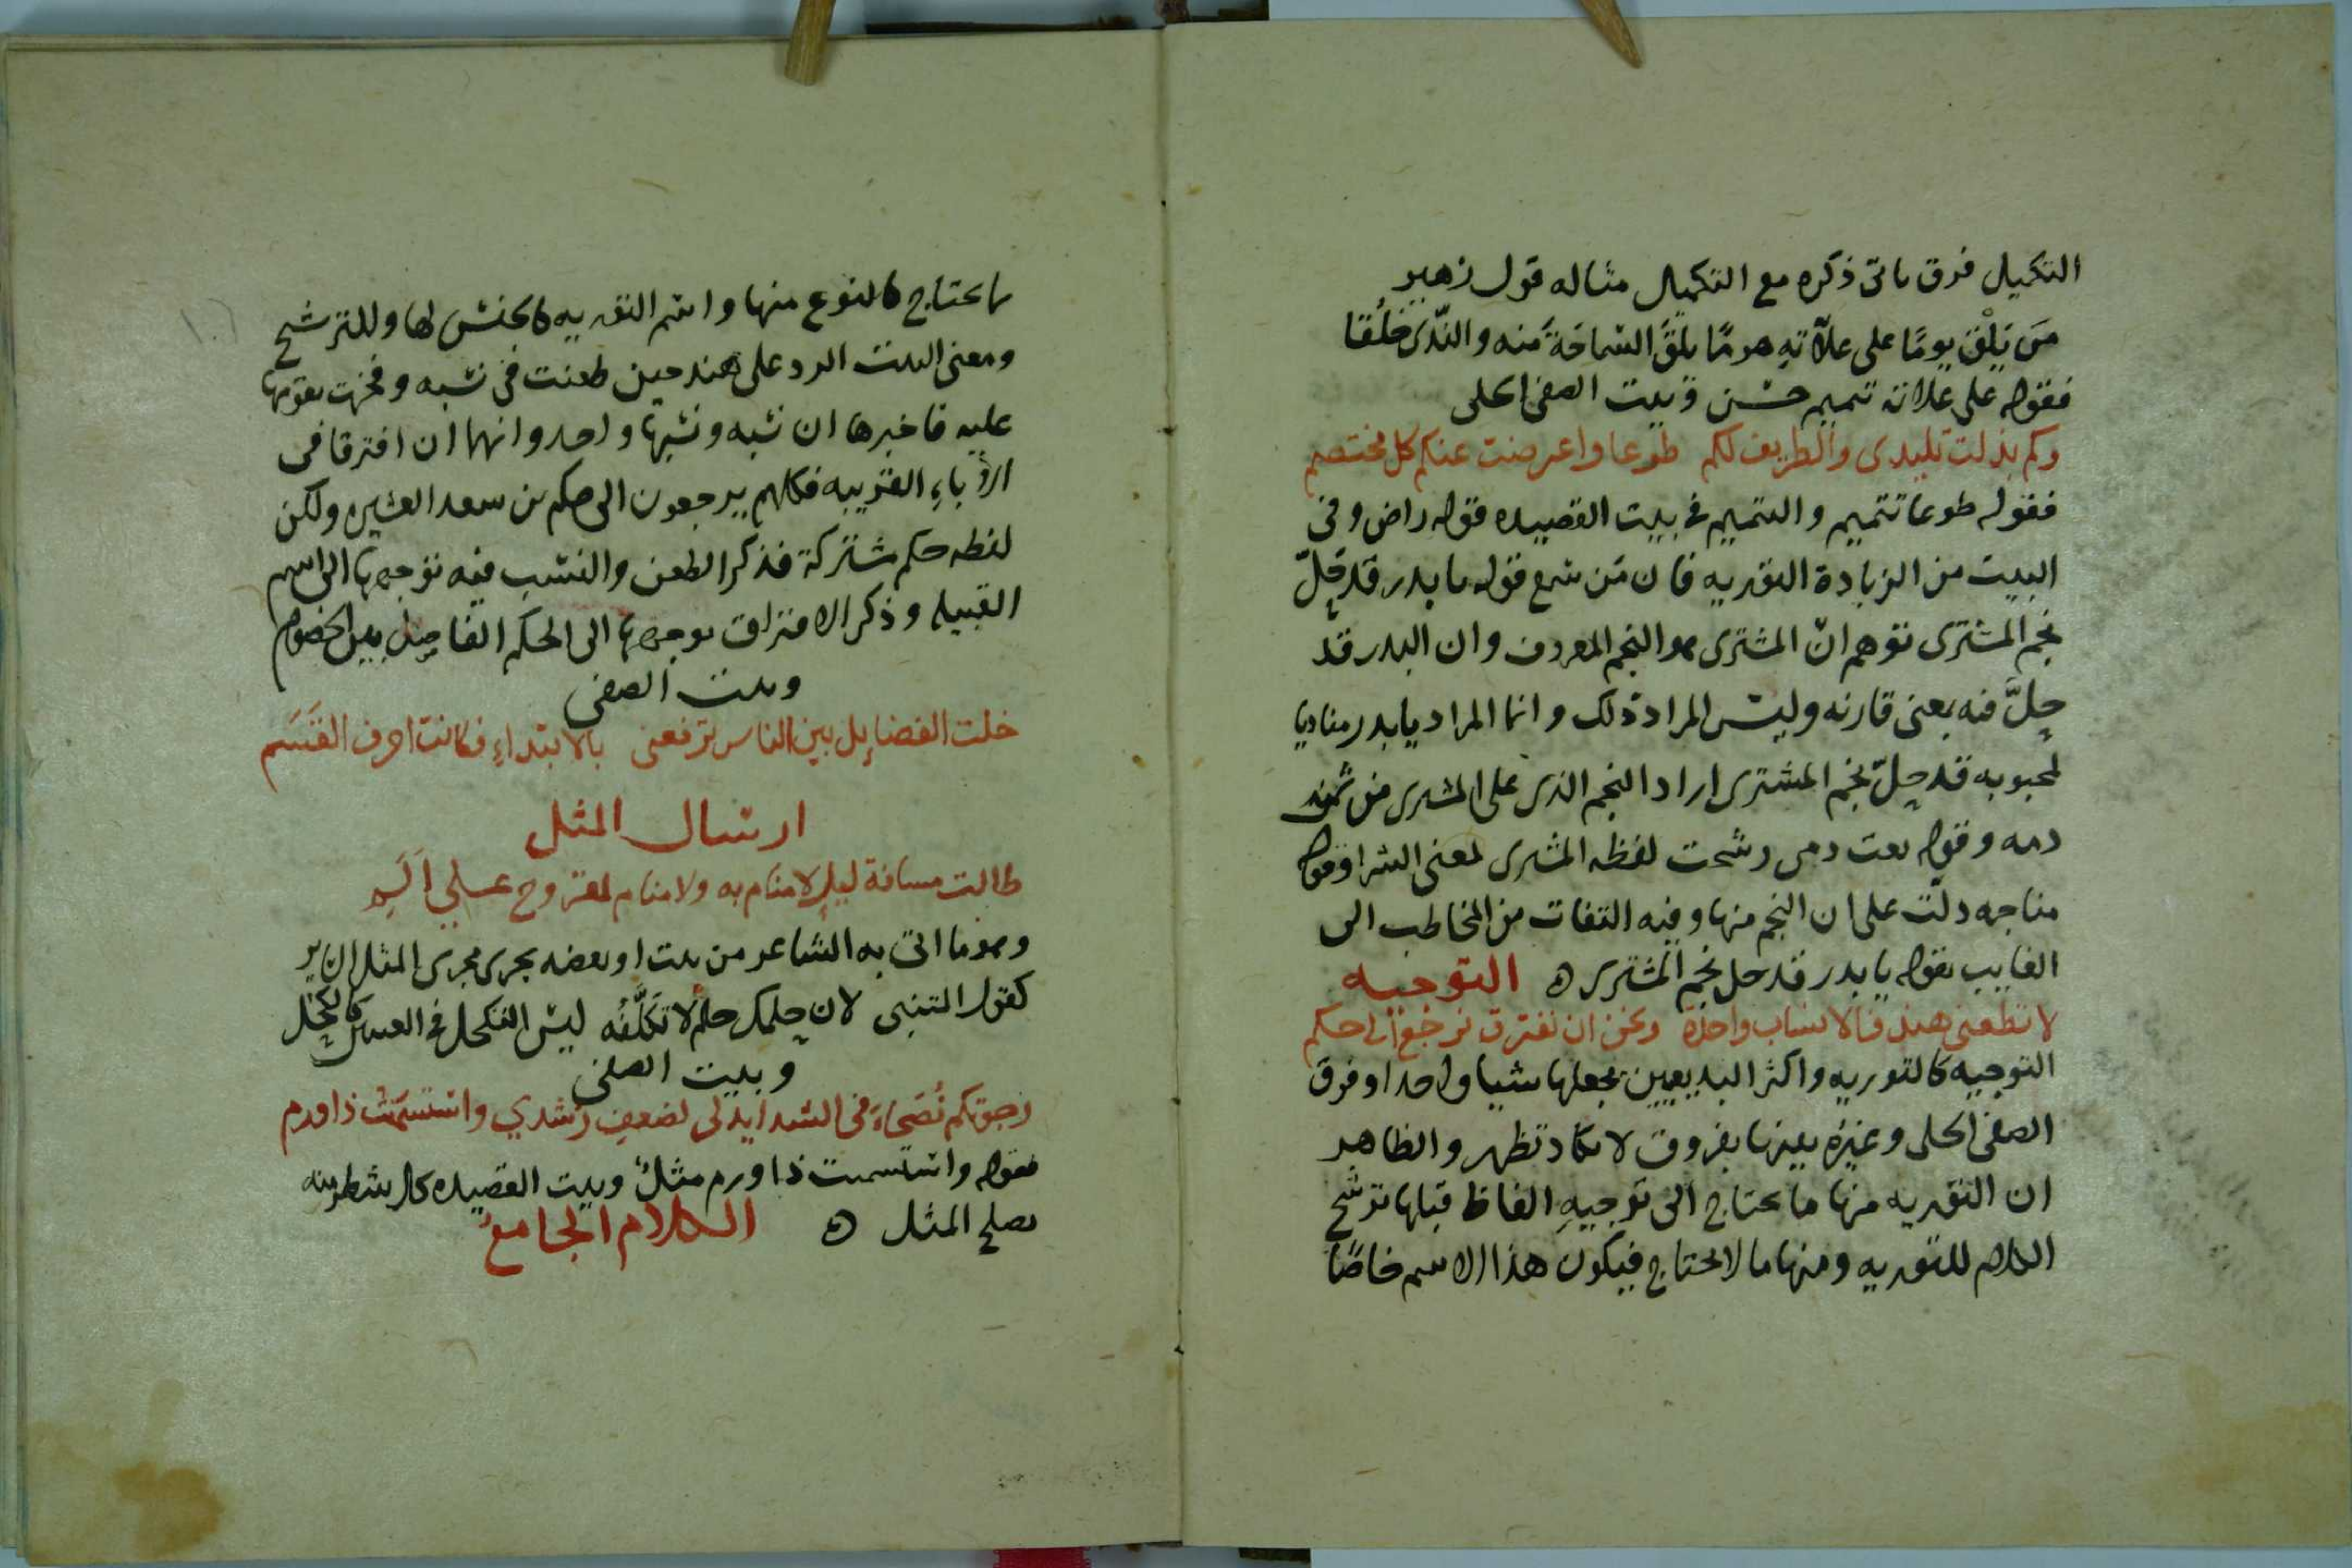 التكميل فرق ياتى ذكره مع التكميل مثاله قول زهير
مَن يَلْقَ يومًا على علّاتهِ هرمًا يلقَ السماحَةَ منه والنّدى خُلُقا
فقوله على علاته تتميم حسن وبيت الصفى الحلى
وكم بذلت تليدى والطريف لكم طوعا واعرضت عنكم كل مختصم
فقوله طوعا تتميم والتتميم فى بيت القصيده قوله راض وفى
البيت من الزيادة التوريه فان مَن سمع قوله يا بدر قد حِلّ
نجم المشترى توهم انّ المشترى هو النجم المعروف وان البدر قد
حِلَّ فيه بمعنى قارنه وليس المراد ذلك وانما المراد يا بدر مناديا
لمحبوبه قد حِلّ نجم المشترى اراد النجم الذى على المشترى من ثمن
دمه وقوله بعت دمى رشحت لفظه المشترى لمعنى الشرا وقوله
مناجمه دلّت على ان النجم منها وفيه التفات من المخاطب الى
الغايب بقوله يا بدر قد حل نجم المشترى ه التوجيه
لا تطعنى هند فالانساب واحدة ونحن ان نفترق نرجع الى حكم
التوجيه كالتوريه واكثر البديعيين يجعلها شيا واحدا وفرق
الصفى الحلى وغيره بينها بفروق لا تكاد تظهر والظاهر
ان التوريه منها ما يحتاج الى توجيهِ الفاظ قبلها ترشح
الكلام للتوريه ومنها ما لا يحتاج فيكون هذا الاسم خاصًا
ما يحتاج كالنوع منها واسم التوريه كالجنس لها وللترشح
ومعنى البيت الرد على هند حين طعنت فى نسبه وفخرت بقومها
عليه فاخبرها ان نسبه ونسبها واحد وانهما ان افترقا فى
الآباءِ القريبه فكلهم يرجعون الى حكم بن سعد العشيره ولكن
لفظه حكم مشتركة فذكر الطعن والنسب فيه توجهها الى اسم
القبيله وذكر الافتراق يوجهها الى الحكم الفاصِل بين الخصوم
وبيت الصفى
خلت الفضايل بين الناس ترفعنى بالابتداءِ فكانت احرف القَسَم
ارسال المثل
طالت مسافة ليلٍ لا منام به ولا منام لمقروح على اَلَمِ
وهو ما اتى به الشاعر من بيت او بعضه يجرى مجرى المثل الساير
كقول المتنبى لان حِلمك حلم لا تَكَلَّفُه ليس التكحل فى العينين كالكحل
وبيت الصفى
رجوتكم نُصَحاءَ فى الشدايد لى لضعفِ رُشدي واستسمنتُ ذا ورم
فقوله واستسمنت ذا ورم مثلٌ وبيت القصيده كل شطر منه
يصلح المثل ه الكلام الجامع